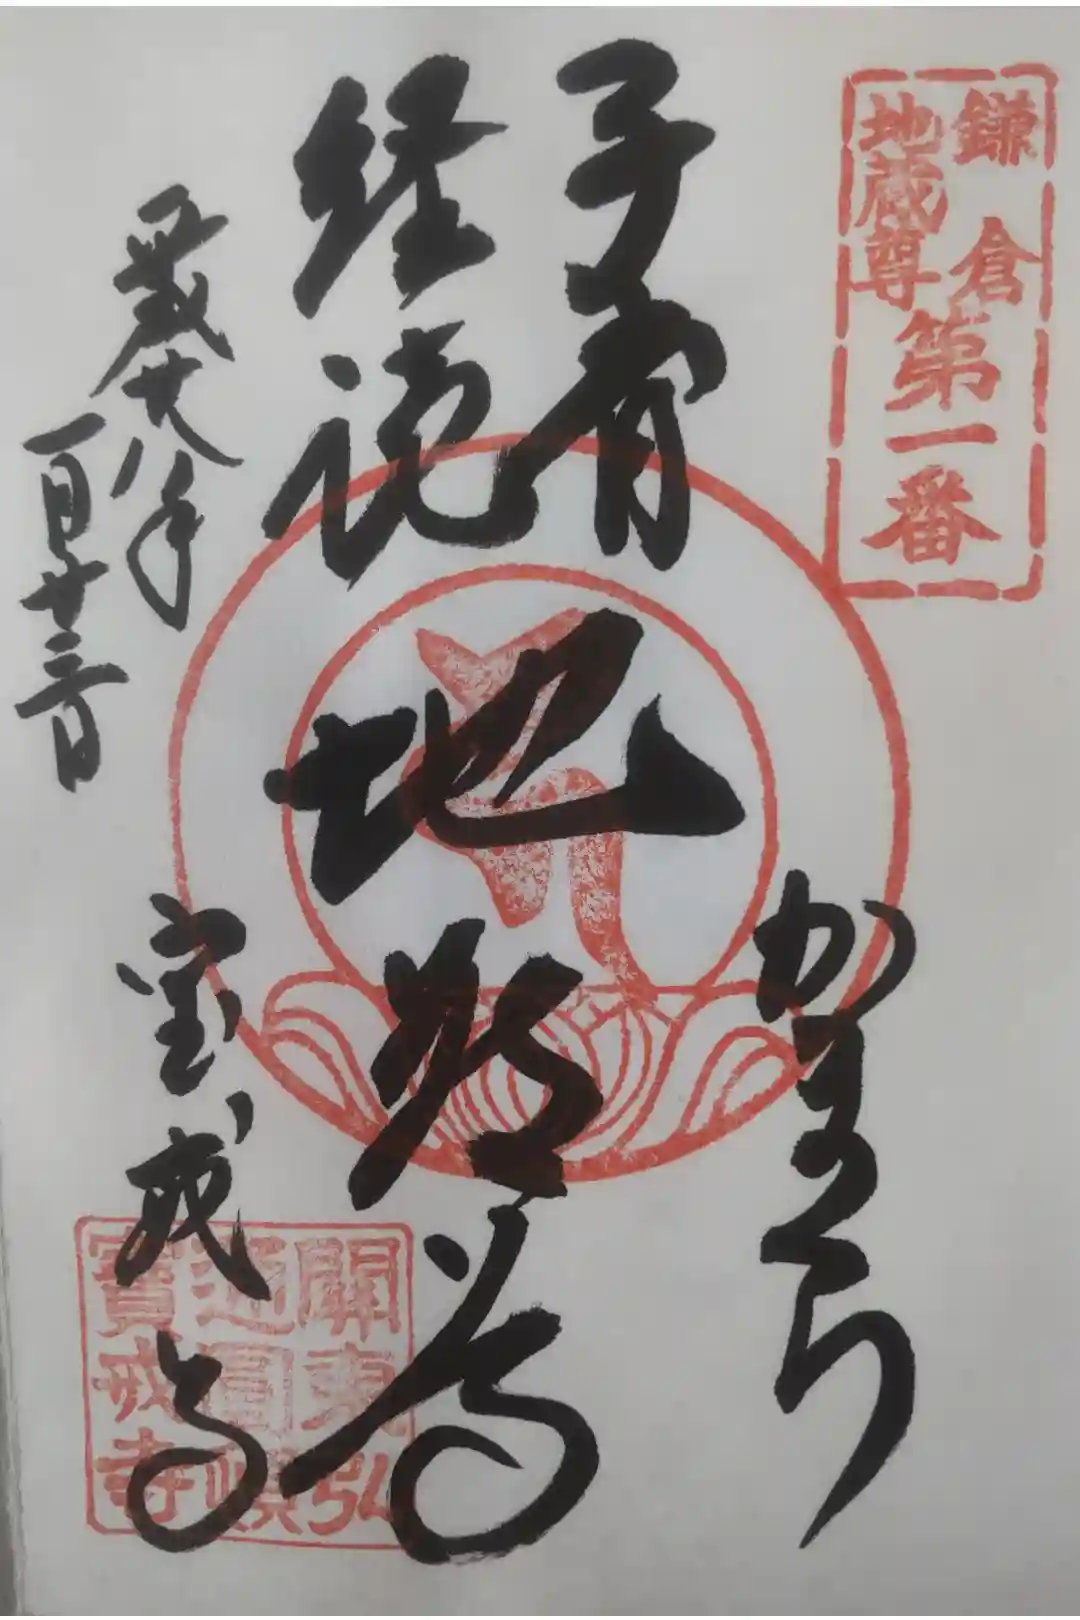 鎌倉
地蔵尊
第一番
子育
経読
地蔵尊
かまくら
平成廿八年
一月廿三日
宝戒寺
關東弘
通圓頓
寶戒寺